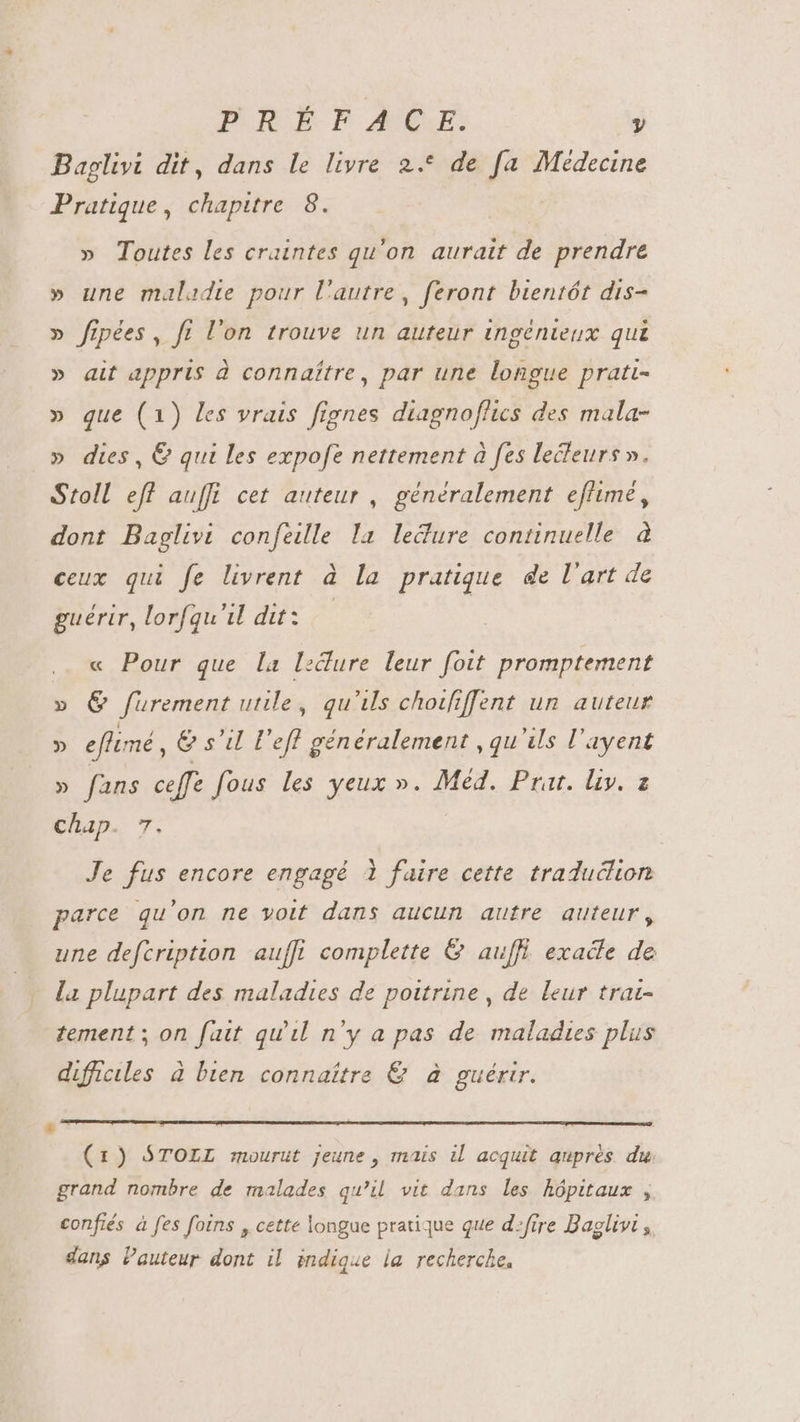 PRÉFACE. v
Baglivi dit, dans le livre 2.e de ſa Médecine
Pratique, chapitre 8.
» Toutes les craintes qu'on aurait de prendre
» une maladie pour l'autre, ſeront bientôt dis-
» ſipées, ſi l'on trouve un auteur ingénieux qui
» ait appris à connaître, par une longue prati-
» que (1) les vrais ſignes diagnoſtics des mala-
» dies, & qui les expoſe nettement à ſes lecteurs ».
Stoll eſt auſſi cet auteur, généralement eſtimé,
dont Baglivi conſeille la lecture continuelle à
ceux qui ſe livrent à la pratique de l'art de
guérir, lorſqu'il dit:
« Pour que la lecture leur ſoit promptement
» & ſûrement utile, qu'ils choiſiſſent un auteur
» eſtimé, & s'il l'eſt généralement, qu'ils l'ayent
» ſans ceſſe ſous les yeux ». Méd. Prat. liv. 2
chap. 7.
Je fus encore engagé à faire cette traduction
parce qu'on ne voit dans aucun autre auteur,
une deſcription auſſi complette & auſſi exacte de
la plupart des maladies de poitrine, de leur trai-
tement; on ſait qu'il n'y a pas de maladies plus
difficiles à bien connaître & à guérir.
(1) STOLL mourut jeune, mais il acquit auprès du
grand nombre de malades qu'il vit dans les hôpitaux,
confiés à ſes ſoins, cette longue pratique que déſire Baglivi,
dans l'auteur dont il indique la recherche.